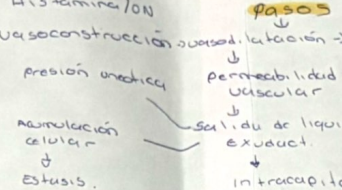 Histamina/ON
pasos
vasoconstrucción vasodilatación
presión
permeabilidad
vascular
Acumulación
celular
salida de liqui
exudact.
Estasis.